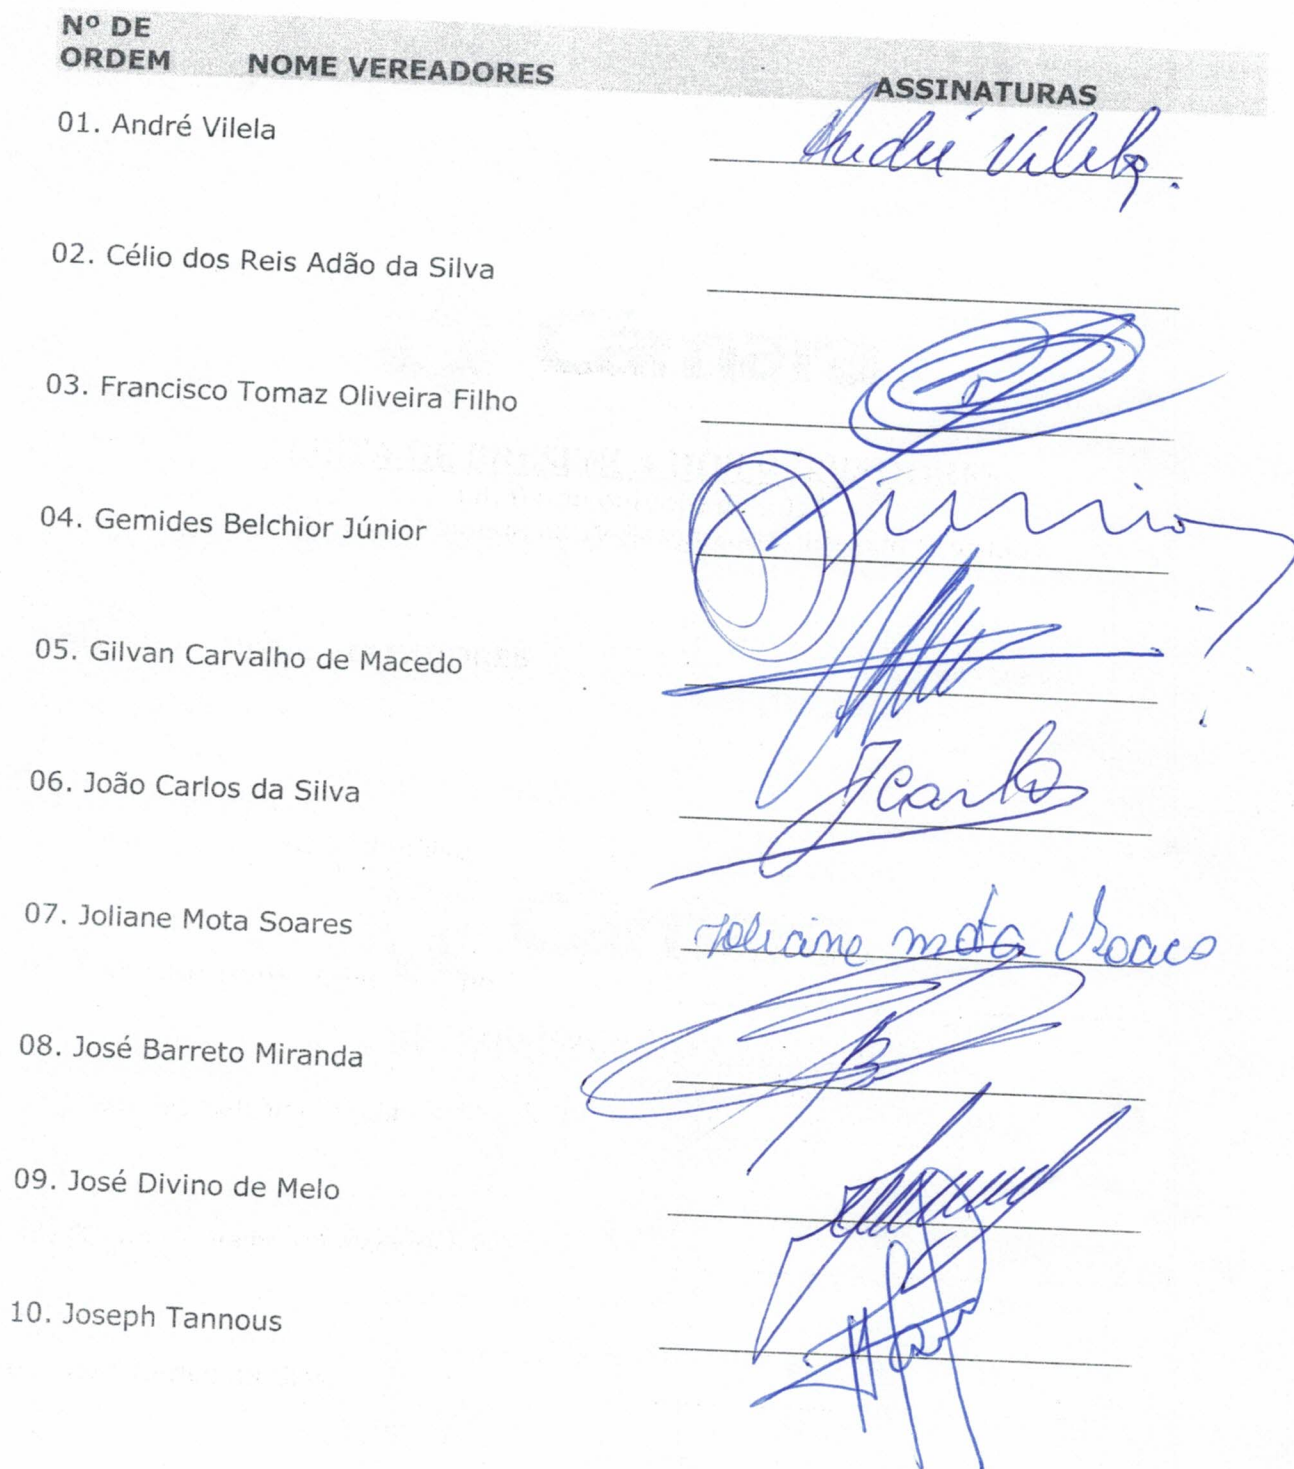 Nº DE
ORDEM NOME VEREADORES ASSINATURAS
01. André Vilela André Vilela.
02. Célio dos Reis Adão da Silva
03. Francisco Tomaz Oliveira Filho
04. Gemides Belchior Júnior Júnior
05. Gilvan Carvalho de Macedo
06. João Carlos da Silva JCarlos
07. Joliane Mota Soares Joliane mota Soares
08. José Barreto Miranda
09. José Divino de Melo
10. Joseph Tannous